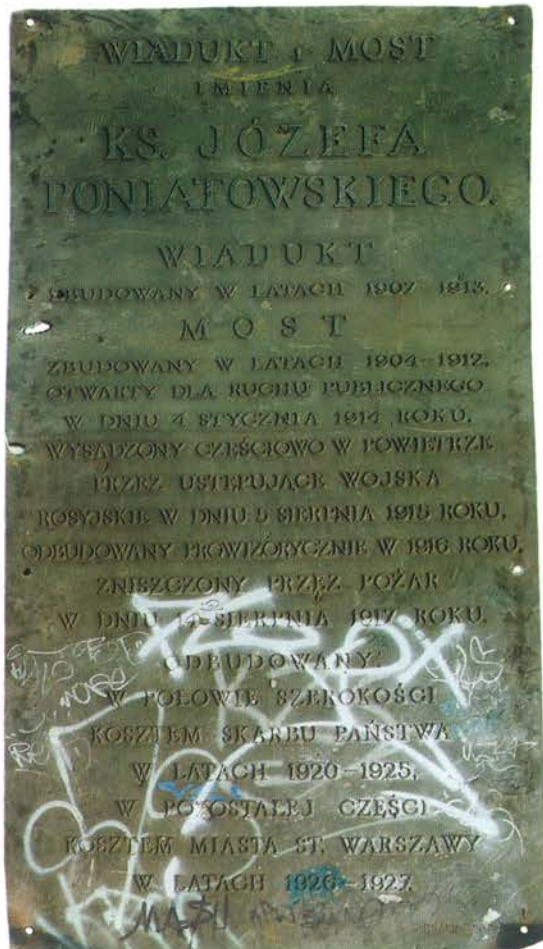 WIADUKT i MOST
IMIENIA
KS. JÓZEFA
PONIATOWSKIEGO.
WIADUKT
ZBUDOWANY W LATACH 1907–1913.
MOST
ZBUDOWANY W LATACH 1904–1912.
OTWARTY DLA RUCHU PUBLICZNEGO
W DNIU 4 STYCZNIA 1914 ROKU.
WYSADZONY CZĘŚCIOWO W POWIETRZE
PRZEZ USTĘPUJĄCE WOJSKA
ROSYJSKIE W DNIU 5 SIERPNIA 1915 ROKU.
ODBUDOWANY PROWIZORYCZNIE W 1916 ROKU.
ZNISZCZONY PRZEZ POŻAR
W DNIU 14 SIERPNIA 1917 ROKU.
ODBUDOWANY:
W POŁOWIE SZEROKOŚCI
KOSZTEM SKARBU PAŃSTWA
W LATACH 1920–1925,
W POZOSTAŁEJ CZĘŚCI
KOSZTEM MIASTA ST. WARSZAWY
W LATACH 1926–1927.